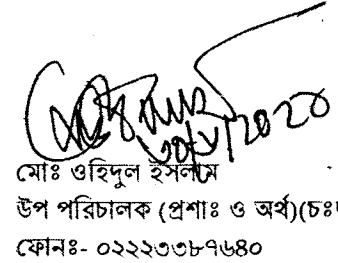 মোঃ ওহিদুল ইসলাম
উপ পরিচালক (প্রশাঃ ও অর্থ)(চঃদ
ফোনঃ- ০২২২৩৩৮৭৬৪০